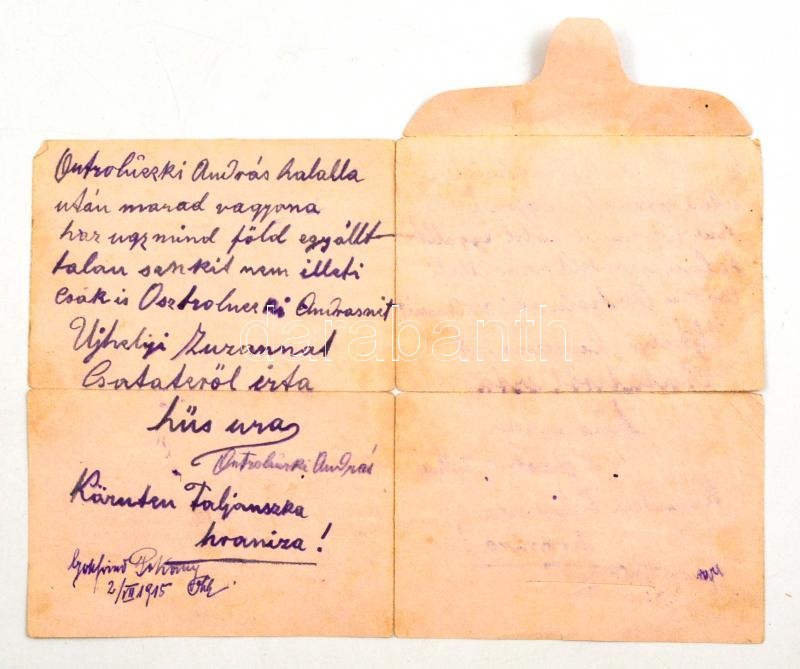 Ostrolúczki András halalla
után marad vagyona
haz ugz mind föld egyállt
talan senkit nem illeti
Csak is Osztroluczki Andrasnét
Ujhelyi Zuzannat
Csatateröl irta
hüs ura
Ostrolúczki András
Kärnten Taljanszka
hraniza!
Gottfried
2/VII 1915
darabanth